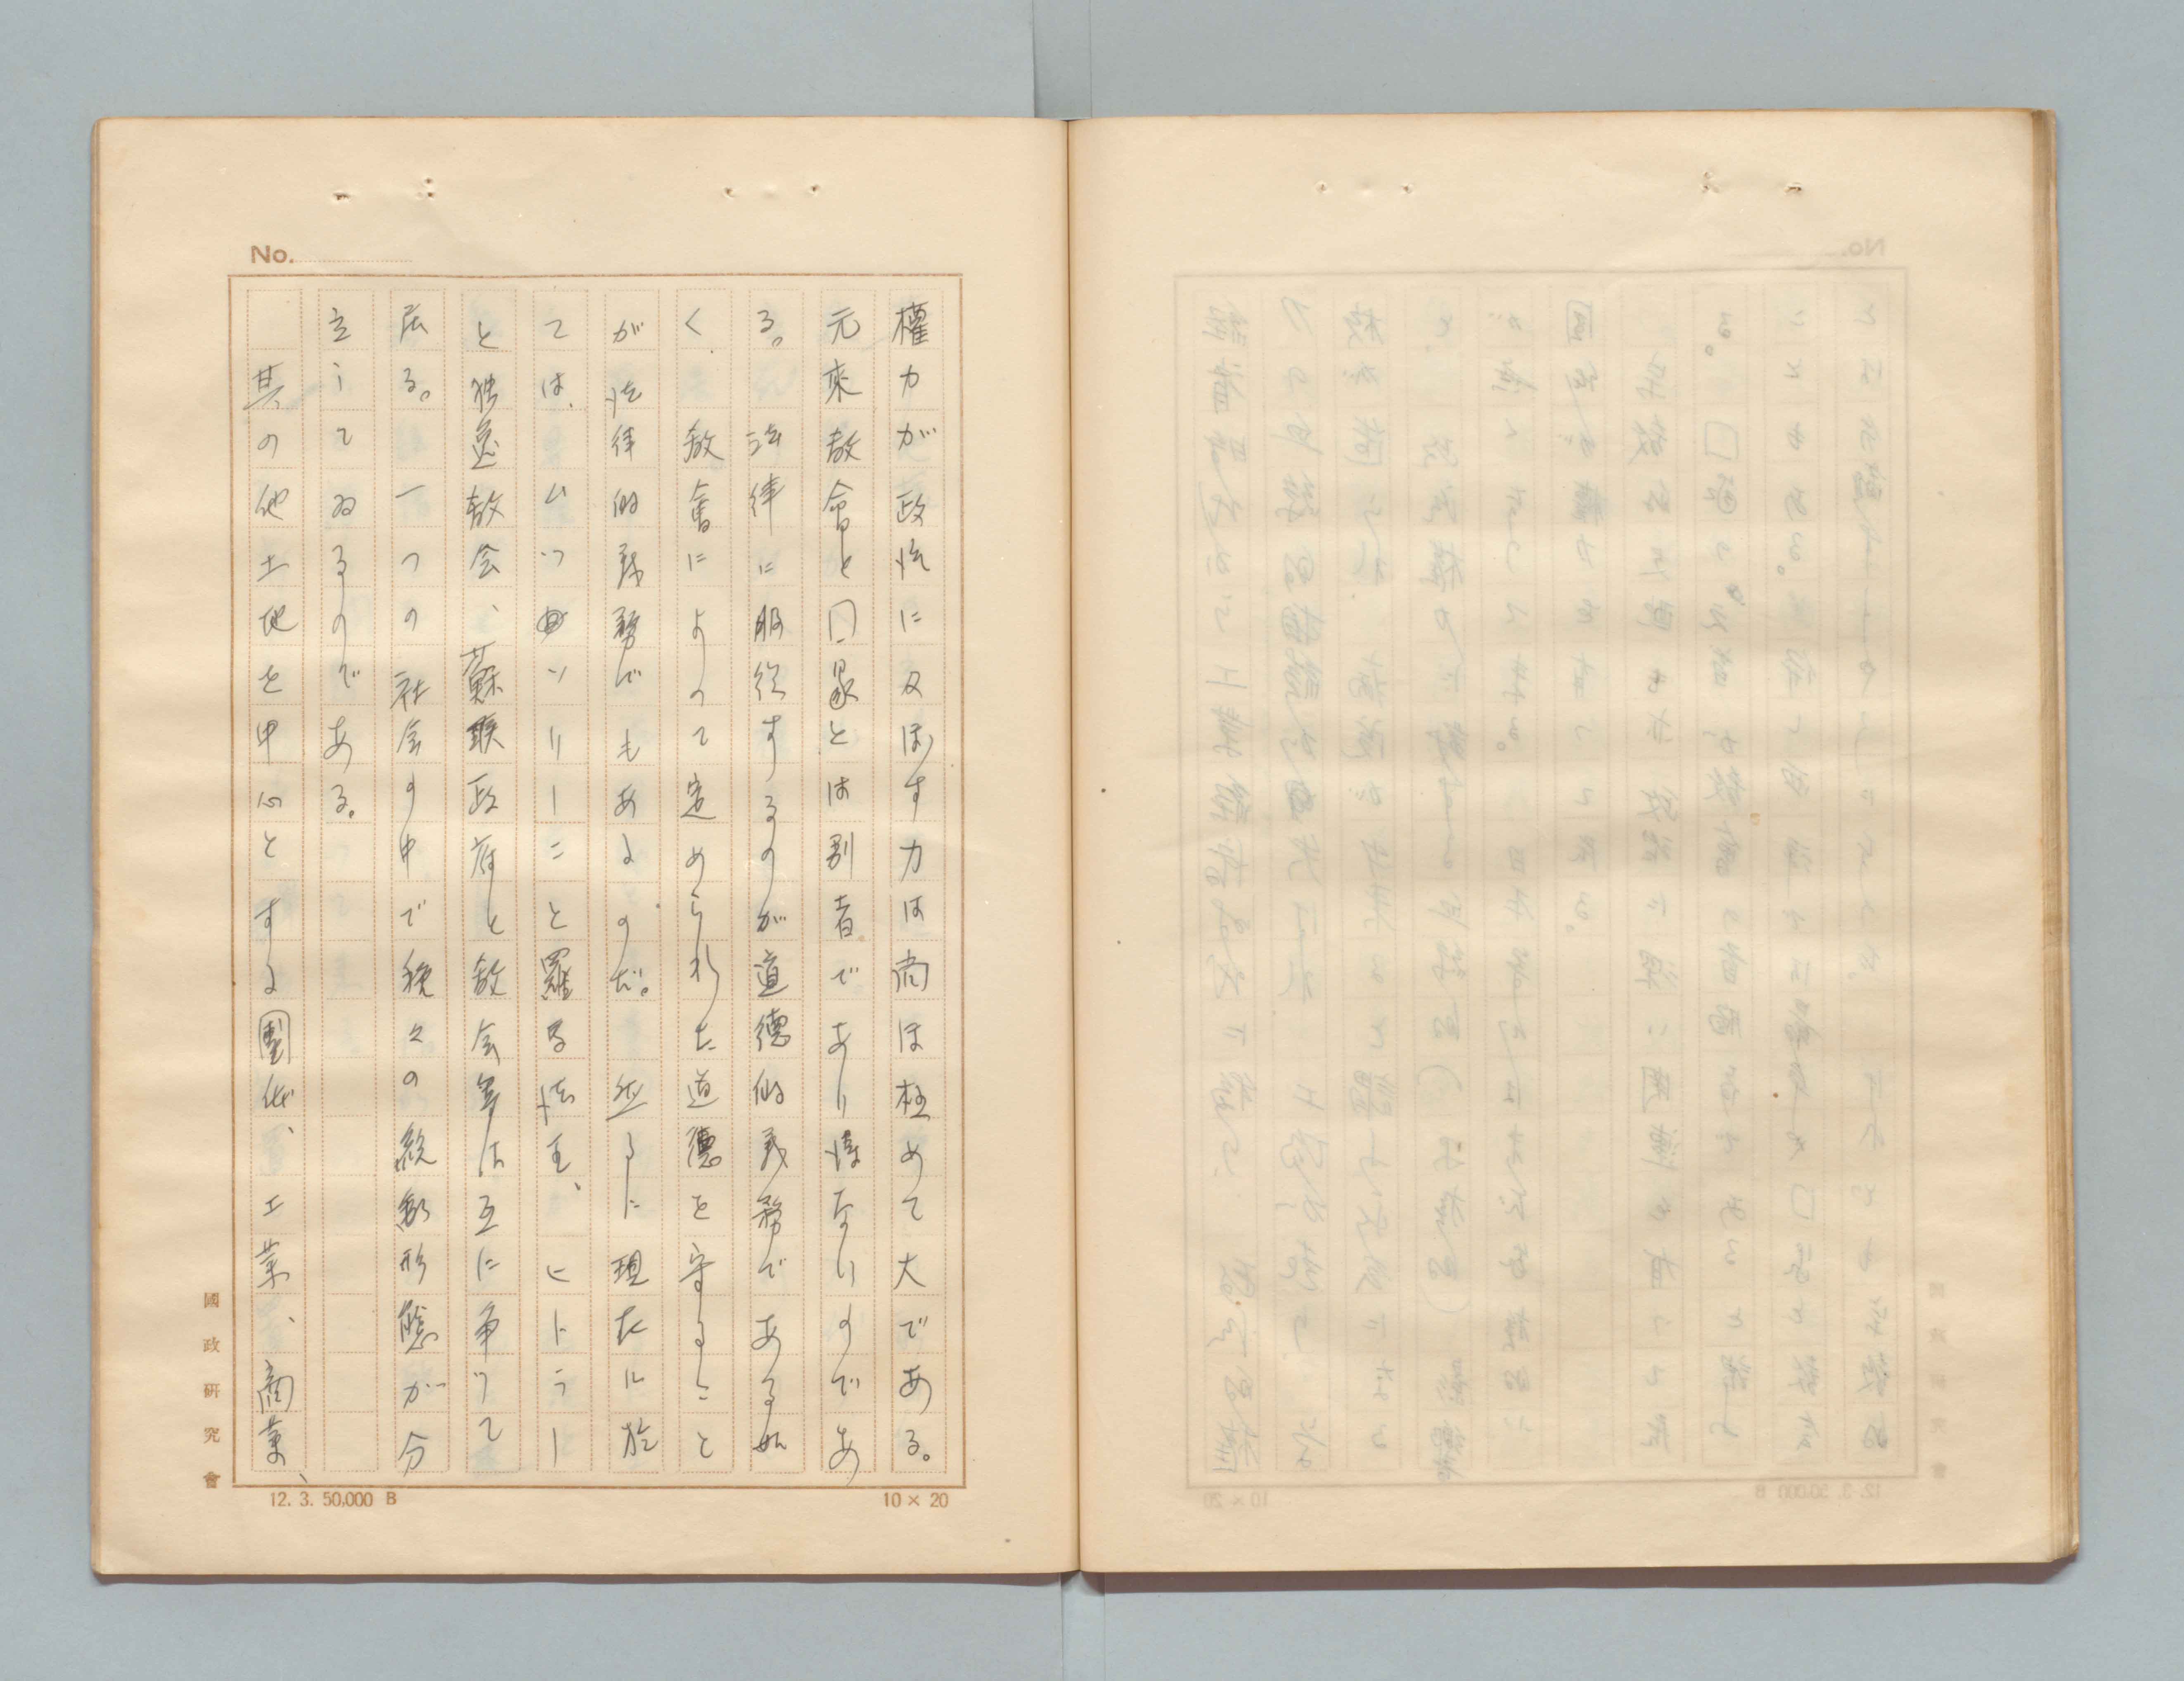 No.
權力が政治に及ぼす力は尚ほ極めて大である。
元来教會と口家とは別者であり得ないのであ
る。法律に服従するのが道徳的義務である如
く、教會によつて定められた道徳を守ること
が法律的義務でもあるのだ。然るに現在に於
ては、ムツソリーニと羅馬法王、ヒトラー
と独逸教会、蘇聯政府と教会等は互に争つて
居る。一つの社会の中で種々の統制形態が分
立してゐるのである。
其の他土地を中心とする団体、工業、商業、
國政研究會
12. 3. 50,000 B
10 × 20